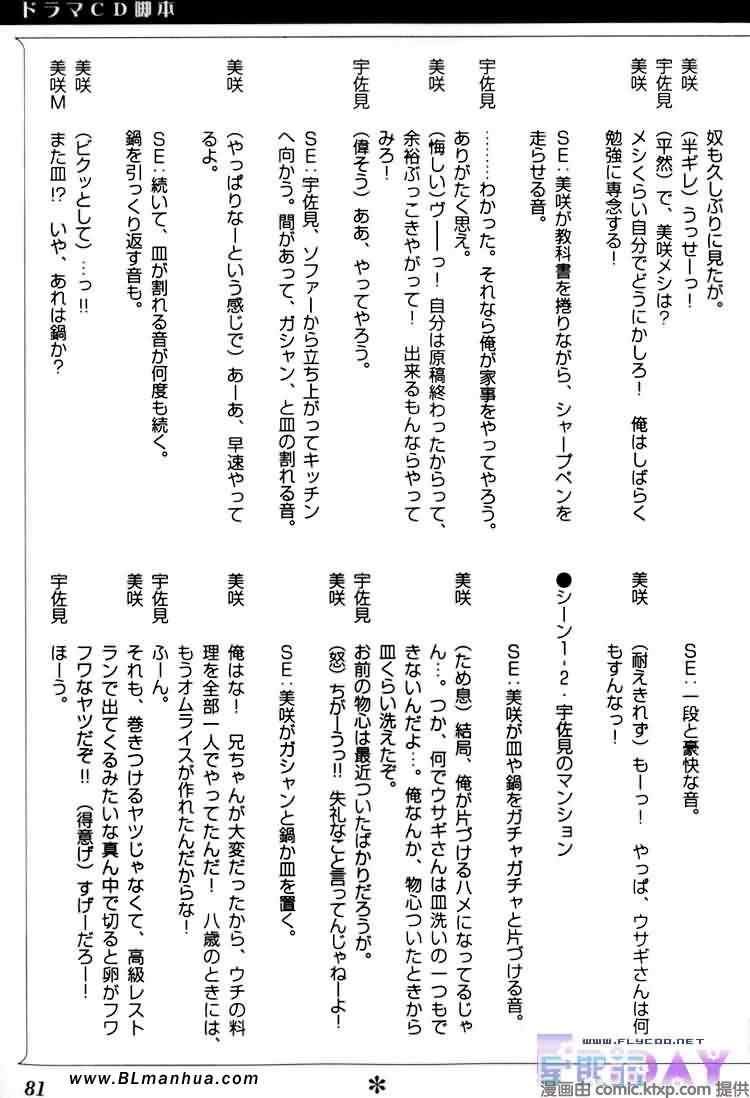 ドラマCD脚本
奴も久しぶりに見たが。
美咲　（半ギレ）うっせーっ！
宇佐見　（平然）で、美咲メシは？
美咲　メシくらい自分でどうにかしろ！　俺はしばらく
勉強に専念する！
ＳＥ：美咲が教科書を捲りながら、シャープペンを
走らせる音。
宇佐見　………わかった。それなら俺が家事をやってやろう。
ありがたく思え。
美咲　（悔しい）ヴーーっ！自分は原稿終わったからって、
余裕ぶっこきやがって！　出来るもんならやって
みろ！
宇佐見　（偉そう）ああ、やってやろう。
ＳＥ：宇佐見、ソファーから立ち上がってキッチン
へ向かう。間があって、ガシャン、と皿の割れる音。
美咲　（やっぱりなーという感じで）あーあ、早速やって
るよ。
ＳＥ：続いて、皿が割れる音が何度も続く。
鍋を引っくり返す音も。
美咲　（ビクッとして）…っ!!
美咲Ｍ　また皿!?　いや、あれは鍋か？
ＳＥ：一段と豪快な音。
美咲　（耐えきれず）もーっ！　やっぱ、ウサギさんは何
もすんなっ！
●シーン1-2・宇佐見のマンション
ＳＥ：美咲が皿や鍋をガチャガチャと片づける音。
美咲　（ため息）結局、俺が片づけるハメになってるじゃ
ん…。つか、何でウサギさんは皿洗いの一つもで
きないんだよ…。俺なんか、物心ついたときから
皿くらい洗えたぞ。
宇佐見　お前の物心は最近ついたばかりだろうが。
美咲　（怒）ちがーうっ!!　失礼なこと言ってんじゃねーよ！
ＳＥ：美咲がガシャンと鍋か皿を置く。
美咲　俺はな！　兄ちゃんが大変だったから、ウチの料
理を全部一人でやってたんだ！　八歳のときには、
もうオムライスが作れたんだからな！
宇佐見　ふーん。
美咲　それも、巻きつけるヤツじゃなくて、高級レスト
ランで出てくるみたいな真ん中で切ると卵がフワ
フワなヤツだぞ!!　（得意げ）すげーだろー！
宇佐見　ほーう。
81
www.BLmanhua.com
*
WWW.FLYCOO.NET
DAY
漫画由 comic.ktxp.com 提供